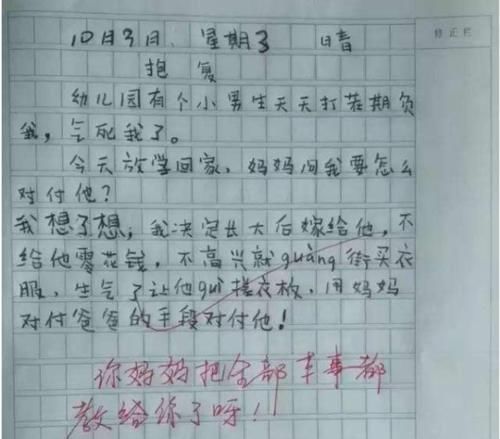 10月3日、星期3 晴
抱复
幼儿园有个小男生天天打架期负
我，气死我了。
今天放学回家，妈妈问我要怎么
对付他？
我想了想，我决定长大后嫁给他，不
给他零花钱，不高兴就guàng街买衣
服，生气了让他guì搓衣板，用妈妈
对付爸爸的手段对付他！
你妈妈把全部本事都
教给你了呀！
修正栏